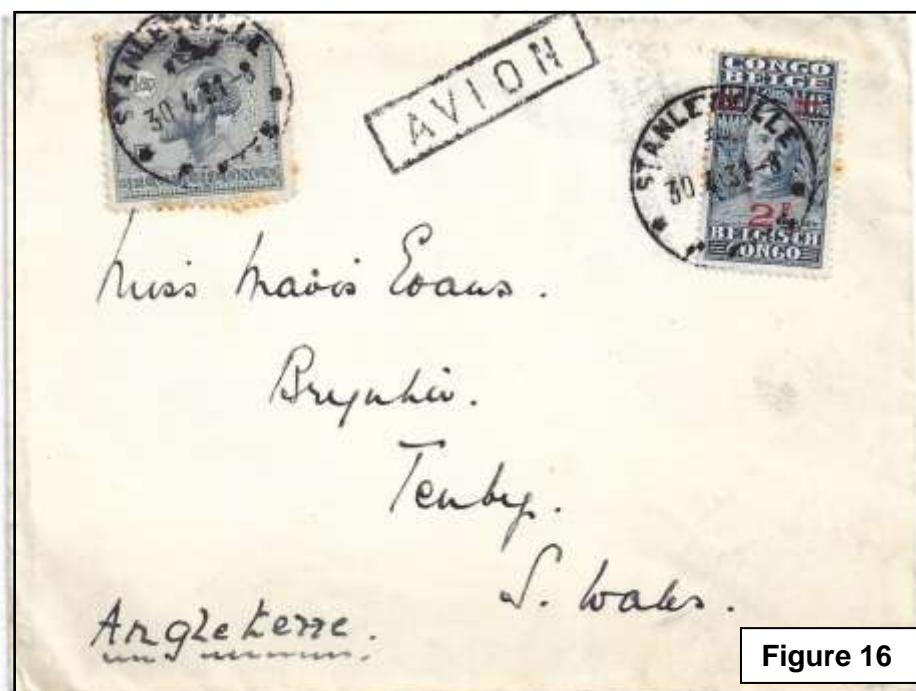 STANLEYVILLE
30.4.31-8
AVION
STANLEYVILLE
30.4.31-8
CONGO
BELGE
2F
BELGISCH
CONGO
Miss Mavis Evans.
Tenby.
S. Wales.
Angleterre.
Figure 16